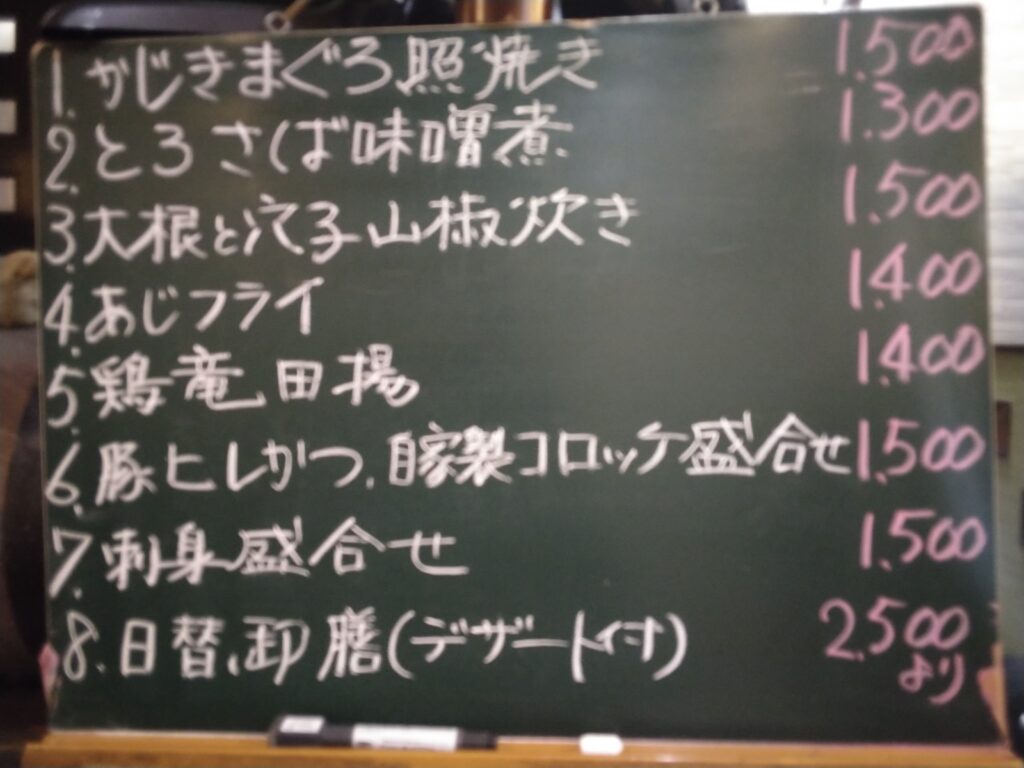 1. かじきまぐろ照焼き 1.500
2. とろさば味噌煮 1.300
3. 大根と穴子山椒炊き 1.500
4. あじフライ 1.400
5. 鶏竜田揚 1.400
6. 豚ヒレかつ、自家製コロッケ盛合せ 1.500
7. 刺身盛合せ 1.500
8. 日替御膳(デザート付) 2.500
より